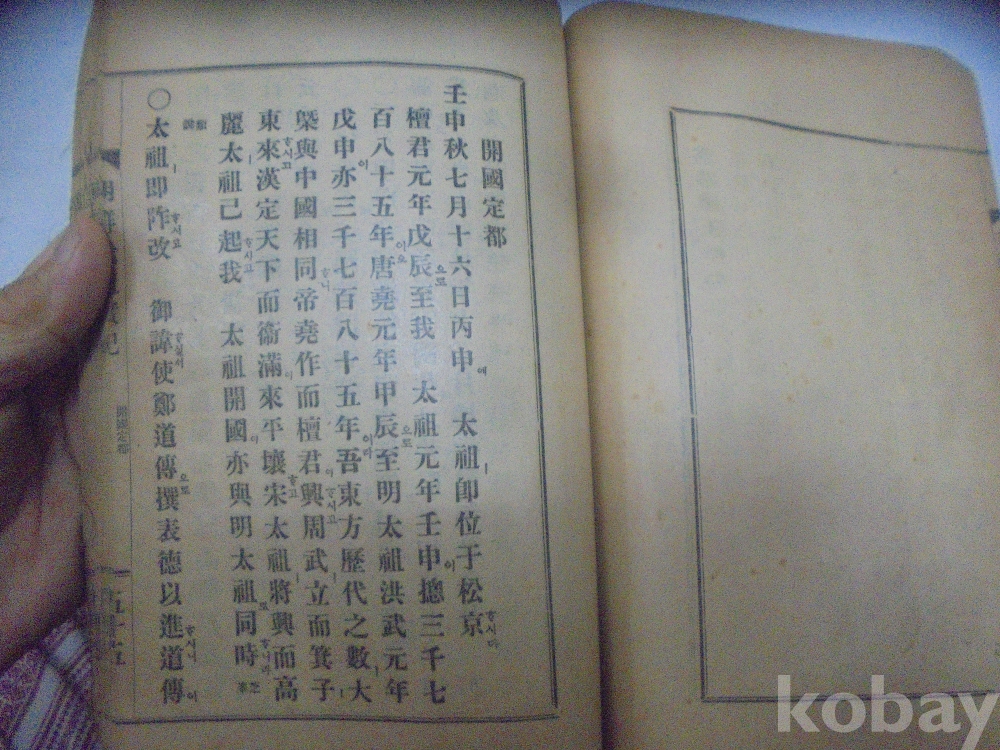 開國定都
壬申秋七月十六日丙申에 太祖ㅣ卽位于松京ᄒᆞ시다
檀君元年戊辰으로至我 太祖元年壬申이摠三千七
百八十五年이오唐堯元年甲辰으로至明太祖洪武元年
戊申이亦三千七百八十五年이라吾東方歷代之數ㅣ大
槩與中國相同ᄒᆞ니帝堯作而檀君이興ᄒᆞ시고周武ㅣ立而箕子
東來ᄒᆞ시고漢定天下而衞滿이來平壤ᄒᆞ고宋太祖ㅣ將興而高
麗太祖ㅣ已起ᄒᆞ시고我 太祖開國이亦與明太祖로同時
○太祖ㅣ卽阼ᄒᆞ시고改 御諱ᄒᆞ실ᄉᆡ使鄭道傳으로撰表德以進ᄒᆞ시니道傳이
附錄定都
五十五
kobay